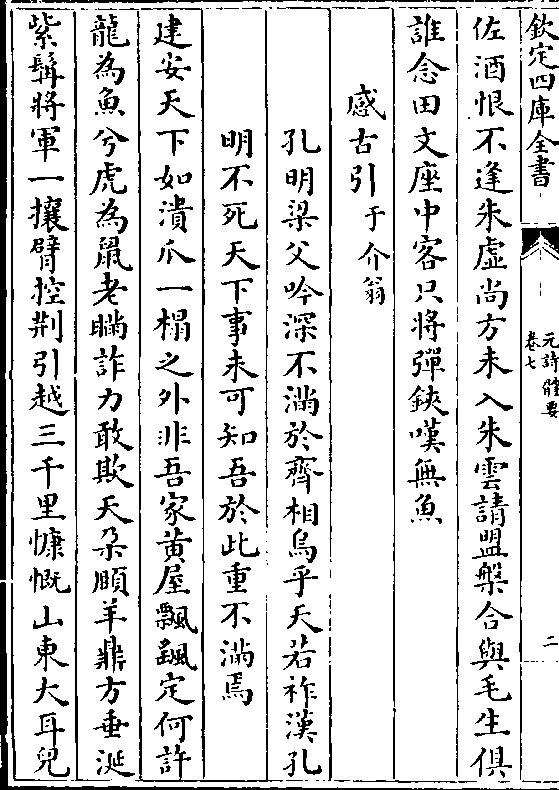 欽定四庫全書
元詩體要
卷七
二
佐酒恨不逢朱虛尚方未入朱雲請盟槃合與毛生俱
誰念田文座中客只將彈鋏嘆無魚
感古引于介翁
孔明梁父吟深不滿於齊相烏乎天若祚漢孔
明不死天下事未可知吾於此重不滿焉
建安天下如潰瓜一榻之外非吾家黃屋飄飄定何許
龍為魚兮虎為鼠老瞞詐力敢欺天朶頤羊鼎方垂涎
紫髯將軍一攘臂控荆引越三千里慷慨山東大耳兒